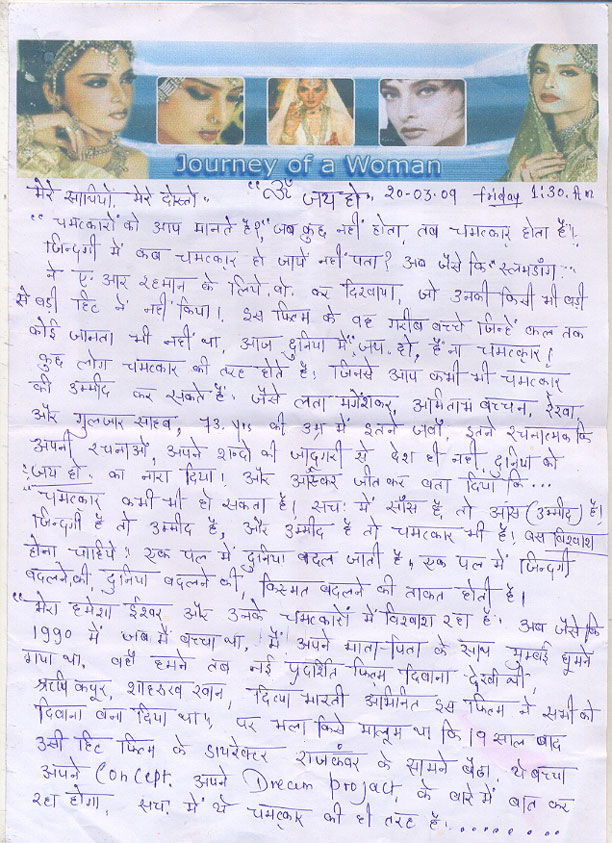 Journey of a Woman
मेरे साथियों, मेरे दोस्तो "ॐ जय हो" 20-03.09 friday 1:30. Am
"चमत्कारों को आप मानते है?," जब कुछ नहीं होता, तब चमत्कार होता है"!
जिन्दगी में कब चमत्कार हो जाये नहीं पता? अब जैसे कि "स्लमडॉग"
ने ए. आर रहमान के लिये वो कर दिखाया, जो उनकी किसी भी बड़ी
से बड़ी हिट ने नहीं किया!. इस फिल्म के वह गरीब बच्चे जिन्हें कल तक
कोई जानता भी नहीं था, आज दुनिया में "जय. हो, है ना चमत्कार!
कुछ लोग चमत्कार की तरह होते है! जिनसे आप कभी भी चमत्कार
की उम्मीद कर सकते है. जैसे लता मंगेशकर, अमिताभ बच्चन, रेखा,
और गुलजार साहब, 73. yrs की उम्र में इतने जवाँ, इतने रचनात्मक कि
अपनी रचनाओं, अपने शब्दो की जादूगरी से देश ही नहीं, दुनिया को
"जय हो. का नारा दिया!. और ऑस्कर जीत कर बता दिया कि...
"चमत्कार कभी भी हो सकता है! सच में साँस है, तो आंस (उम्मीद) है!
जिन्दगी है तो उम्मीद है, और उम्मीद है तो चमत्कार भी है! बस विश्वाश
होना चाहिये! एक पल में दुनिया बदल जाती है, एक पल में जिन्दगी
बदलने की, दुनिया बदलने की, किस्मत बदलने की ताकत होती है!
"मेरा हमेशा ईश्वर और उनके चमत्कारों में विश्वाश रहा है. अब जैसे कि
1990 में जब मैं बच्चा था. मैं अपने माता-पिता के साथ मुम्बई घूमने
गया था. वहाँ हमने तब नई प्रदर्शित फिल्म दिवाना देखी थी,
ऋषि कपूर, शाहरुख खान, दिव्या भारती अभिनित इस फिल्म ने सभी को
दिवाना बना दिया था", पर भला किसे मालूम था कि 19 साल बाद
उसी हिट फिल्म के डायरेक्टर राजकंवर के सामने बैठा. ये बच्चा
अपने Concept. अपने Dream project, के बारे में बात कर
रहा होगा, सच. में ये चमत्कार की ही तरह है.........